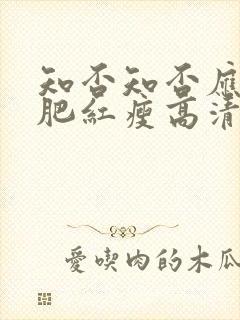 知否知否應
肥紅瘦高清
愛喫肉的木瓜